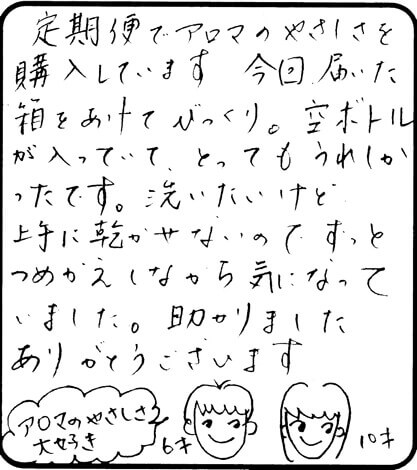 定期便でアロマのやさしさを
購入しています 今回届いた
箱をあけてびっくり。空ボトル
が入っていて、とってもうれしか
ったです。洗いたいけど
上手に乾かせないのでずっと
つめかえしながら気になって
いました。助かりました
ありがとうございます
アロマのやさしさ
大好き
6才
10才